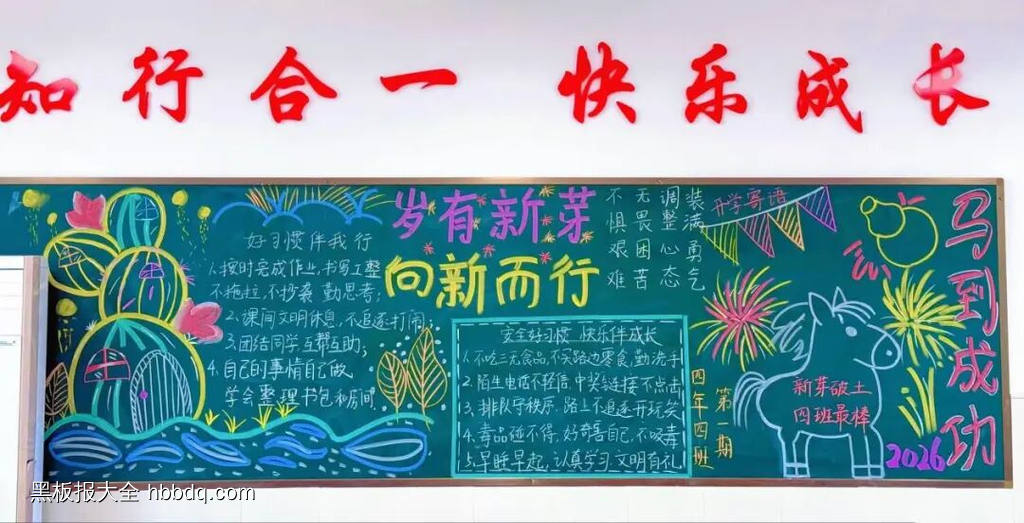 知行合一 快乐成长
好习惯伴我行
1.按时完成作业,书写工整
不拖拉,不抄袭 勤思考;
2.课间文明休息,不追逐打闹;
3.团结同学互帮互助;
4.自己的事情自己做
学会整理书包和房间.
岁有新芽
向新而行
不无调装
惧畏整满
艰困心勇
难苦态气
开学寄语
安全好习惯 快乐伴成长
1.不吃三无食品,不买路边零食,勤洗手
2.陌生电话不轻信,中奖链接不点击
3.排队守秩序,路上不追逐开玩笑
4.毒品碰不得,好奇害自己,不吸毒
5.早睡早起,认真学习 文明有礼
四年四班
第一期
新芽破土
四班最棒
马到成功
2026
黑板报大全 hbbdq.com